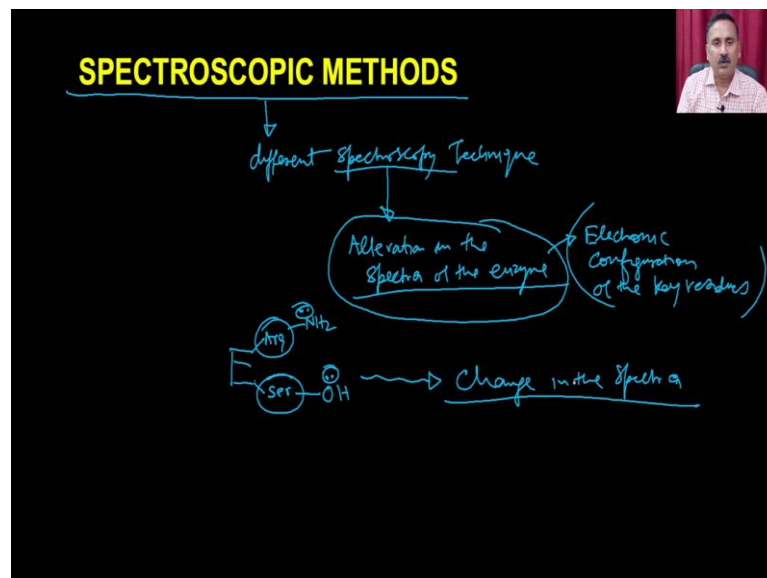 SPECTROSCOPIC METHODS
different spectroscopy Technique
Alteration in the
Spectra of the enzyme
Electronic
configuration
of the key residues
Arg NH2
Ser OH
Change in the Spectra